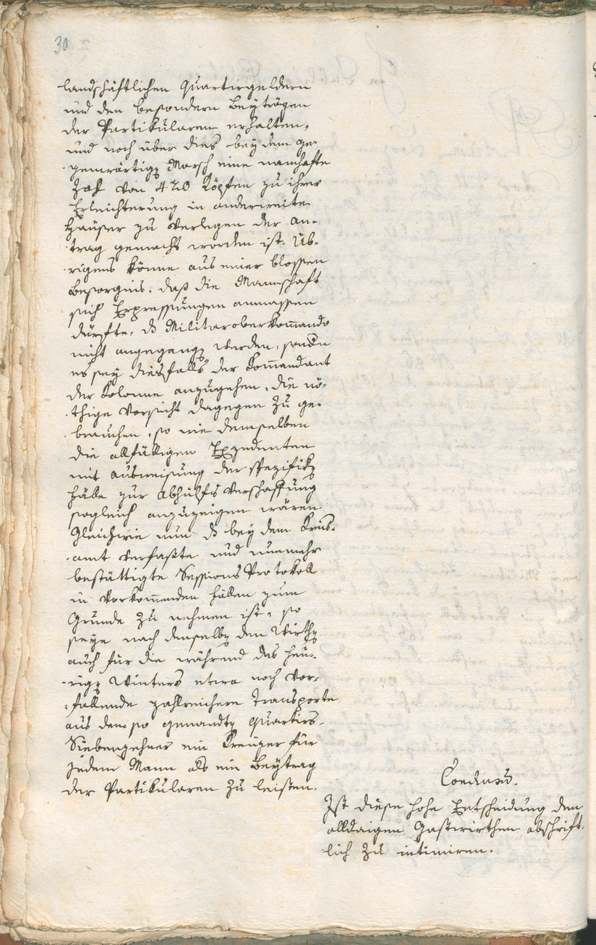 30
landschäftlichen Quartirgeldern
und den besondern Beyträgen
der Partikularen erhalten,
und noch über dies bey dem ge-
genwärtigen Marsch eine namhafte
Zahl von 420 Köpfen zu ihrer
Erleichterung in anderweite
Häuser zu verlegen der An-
trag gemacht worden ist. Üb-
rigens könne aus einer blossen
Besorgnis, daß die Mannschaft
sich Expressungen anmassen
dürfte, ds Militaroberkommando
nicht angegangen werden, sondern
es sey diesfalls der Kommandant
der Kolonne anzugehen, die nö-
thige Vorsicht dagegen zu ge-
brauchen, so wie demselben
die allfälligen Exzedenten
mit Ausweisung der
zur Abhülfs Verschaffung
sogleich anzuzeigen wären.
Gleichwie nun ds bey dem Kreis-
amt verfaßte und nunmehr
bestättigte Sessions Protokoll
in vorkommenden Fällen zum
Grunde zu nehmen ist, so
seye nach demselben den Wirthen
auch für die während des heu-
rigen Winters etwa noch vor-
fallende zahlreichere Transporte
aus dem so genandten Quartirs-
Siebenzehner ein Kreuzer für
jeden Mann als ein Beytrag
der Partikularen zu leisten.
Conclusum.
Ist diese hohe Entscheidung den
alldaigen Gastwirthen abschrift-
lich zu intimiren.